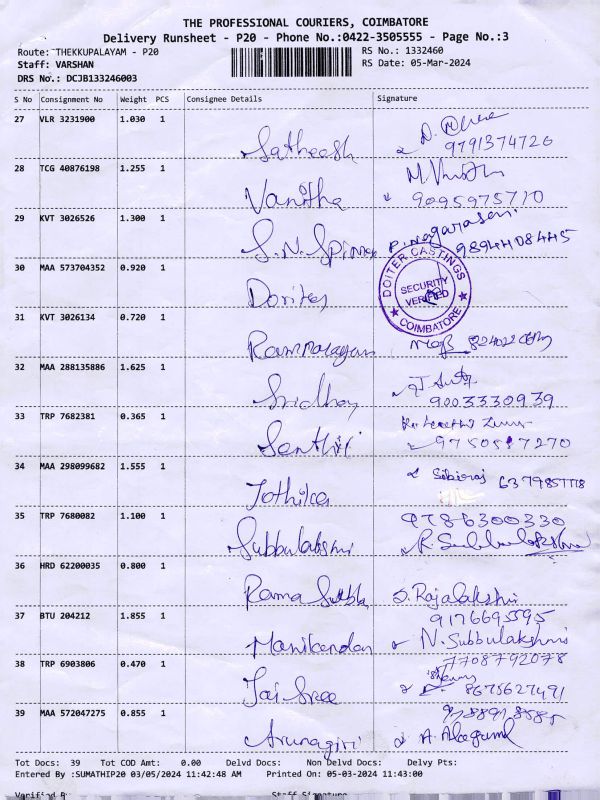 THE PROFESSIONAL COURIERS, COIMBATORE
Delivery Runsheet - P20 - Phone No.:0422-3505555 - Page No.:3
Route: THEKKUPALAYAM - P20 RS No.: 1332460
Staff: VARSHAN RS Date: 05-Mar-2024
DRS No.: DCJB133246003
S No Consignment No Weight PCS Consignee Details Signature
27 VLR 3231900 1.030 1 Satheesh
9791374726
28 TCG 40876198 1.255 1 Vanitha
9095975710
29 KVT 3026526 1.300 1 S.N. P. nagarasan
9894408445
30 MAA 573704352 0.920 1
DOITER CASTINGS
SECURITY
VERIFIED
COIMBATORE
31 KVT 3026134 0.720 1
32 MAA 288135886 1.625 1 Sridhar
9003330939
33 TRP 7682381 0.365 1 Senthil
34 MAA 298099682 1.555 1 Jothika Sibiraj
35 TRP 7680082 1.100 1 Subbulakshmi 9786300330
R. Subbulakshmi
36 HRD 62200035 0.800 1 Rama S. Rajalakshmi
9176695595
37 BTU 204212 1.855 1 Manikandan N. Subbulakshmi
7708792078
38 TRP 6903806 0.470 1 Jai Sree
8675627491
39 MAA 572047275 0.855 1 Arunagiri
Tot Docs: 39 Tot COD Amt: 0.00 Delvd Docs: Non Delvd Docs: Delvy Pts:
Entered By :SUMATHIP20 03/05/2024 11:42:48 AM Printed On: 05-03-2024 11:43:00